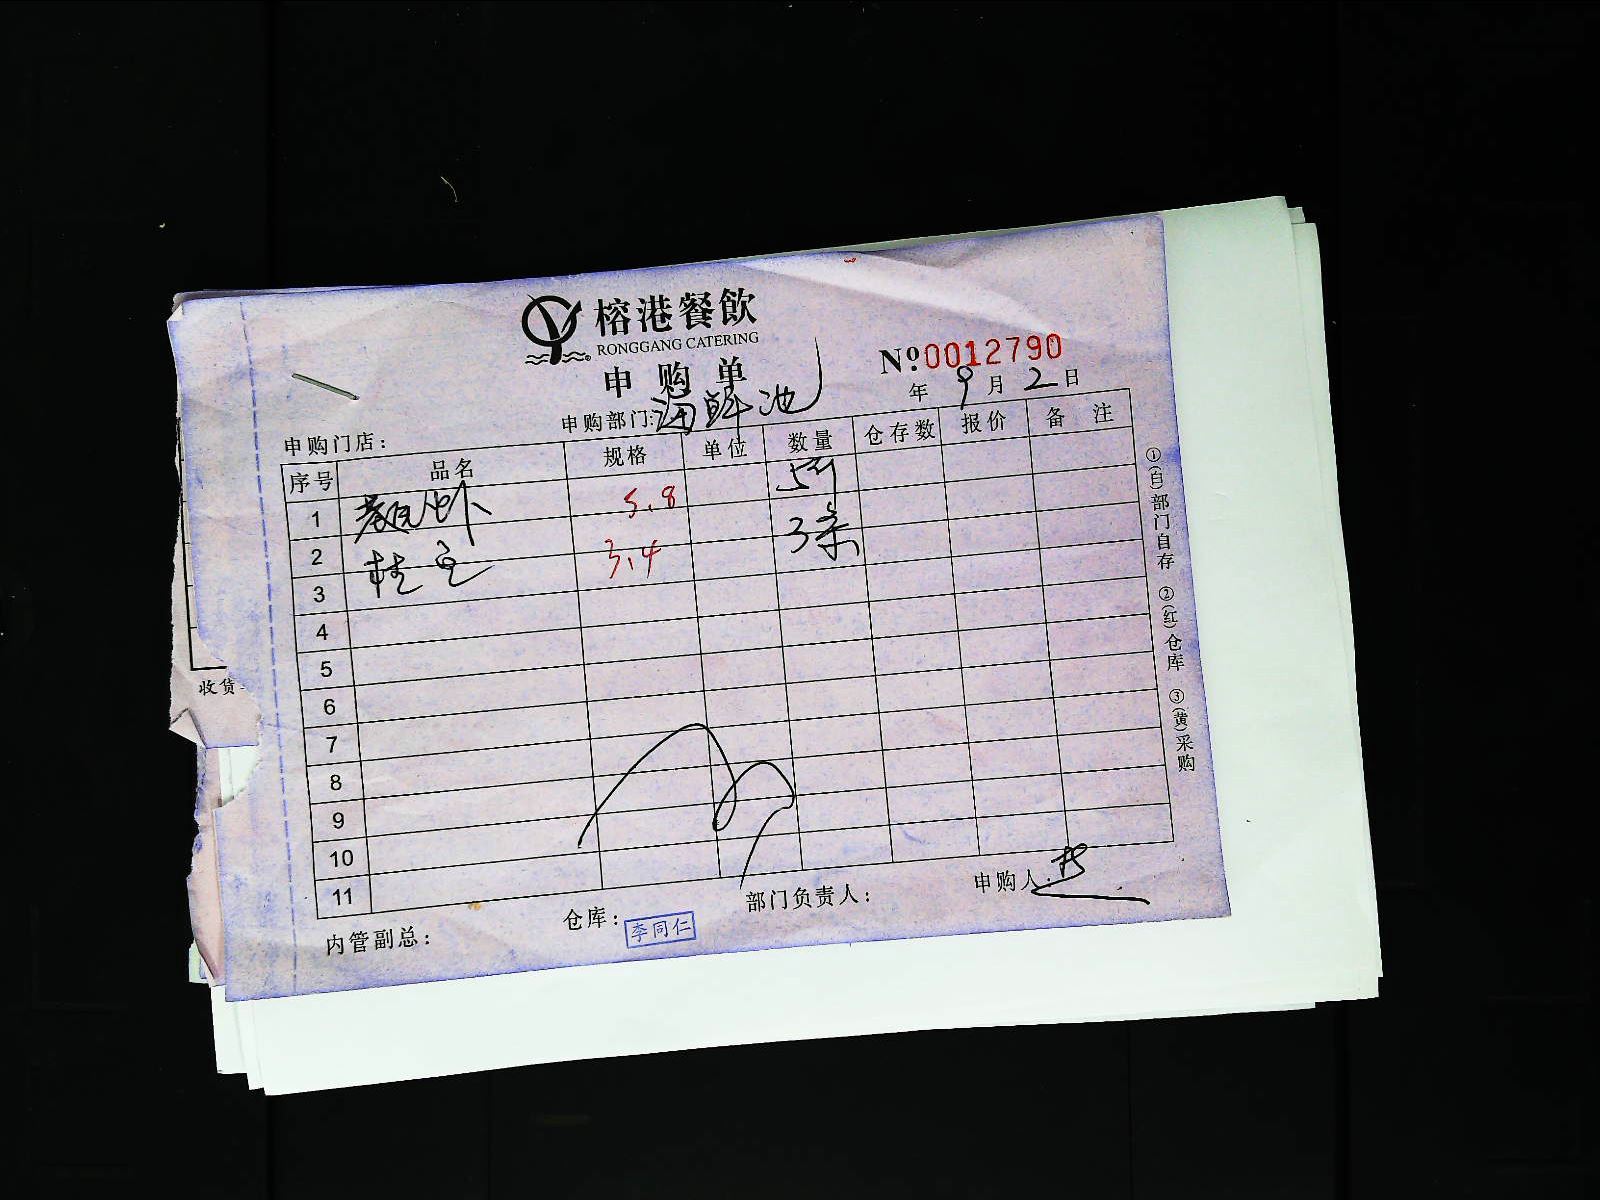 榕港餐飲
RONGGANG CATERING
申购单
№:0012790
年 9 月 2 日
申购门店： 申购部门:海鲜池
序号 品名 规格 单位 数量 仓存数 报价 备注
1 虾 5.8 5斤
2 桂鱼 3.4 3条
3
4
5
6
7
8
9
10
11
内管副总： 仓库：李同仁 部门负责人： 申购人：
①(白)部门自存 ②(红)仓库 ③(黄)采购
收货